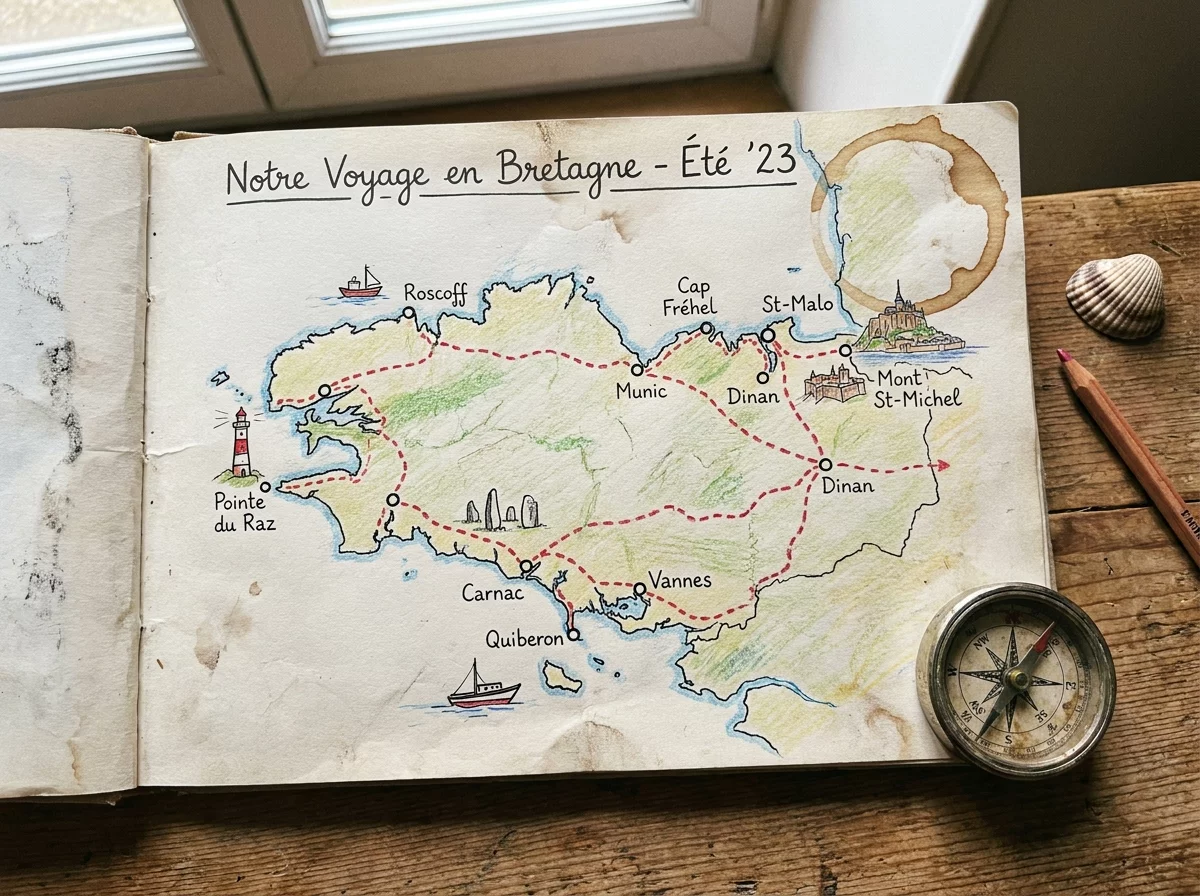 Notre Voyage en Bretagne - Été '23
Roscoff
Cap
Fréhel
St-Malo
Munic
Dinan
Mont
St-Michel
Pointe
du Raz
Dinan
Carnac
Vannes
Quiberon
NW
W
S
SE